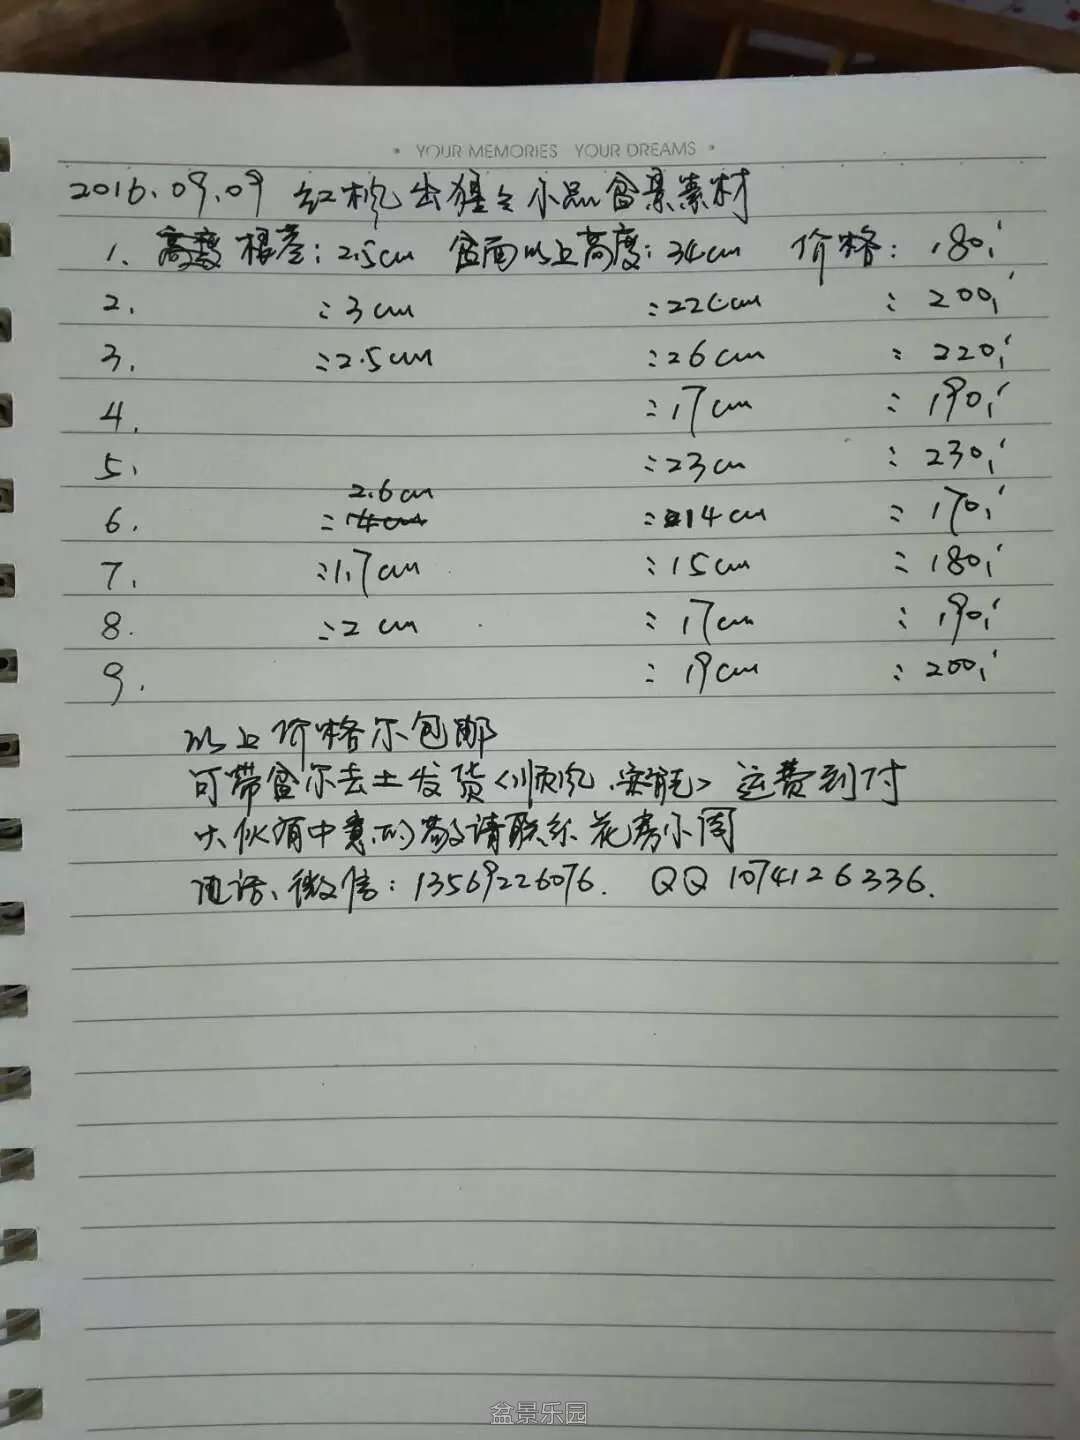 • YOUR MEMORIES YOUR DREAMS •
2016.09.09 红枫出猩々小品盆景素材
1、 根茎:2.5cm 盆面以上高度:34cm 价格:180,'
2. :3cm :22cm :200,'
3. :2.5cm :26cm :220,'
4. :17cm :190,'
5. :23cm :230,'
2.6cm
6. : :14cm :170,'
7. :1.7cm :15cm :180,'
8. :2cm :17cm :190,'
9. :19cm :200,'
以上价格不包邮
可带盆不去土发货<顺风、安能>运费到付
大伙有中意的敬请联系花房小周
电话、微信:13569226076. QQ 1074126336.
盆景乐园